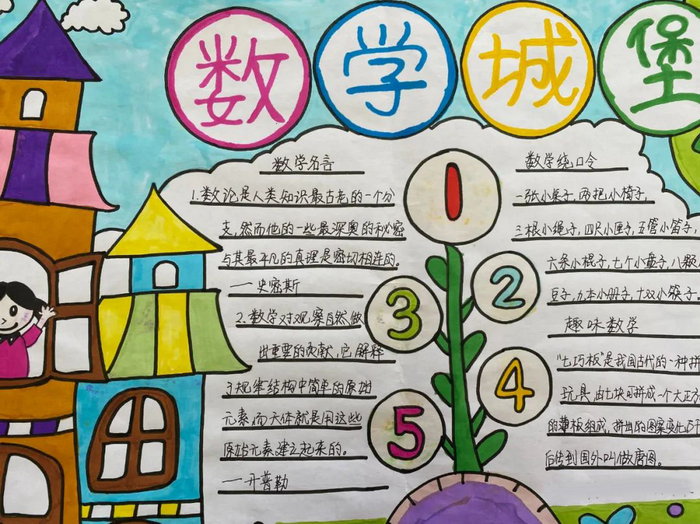 数学城堡
数学名言
1.数论是人类知识最古老的一个分
支,然而他的一些最深奥的秘密
与其最平凡的真理是密切相连的。
——史密斯
2.数学对观察自然做
出重要的贡献,它解释
了规律结构中简单的原始
元素,而天体就是用这些
原始元素建立起来的。
——开普勒
1
2
3
4
5
数学绕口令
一张小桌子,两把小椅子,
三根小绳子,四尺小匣子,五管小笛子,
六条小棍子,七个小盘子,八颗
豆子,九本小册子,十双小筷子
趣味数学
“七巧板”是我国古代的一种拼
玩具,由七块可拼成一个大正方
的薄板组成,拼出的图案变化万千
后传到国外叫做唐图。